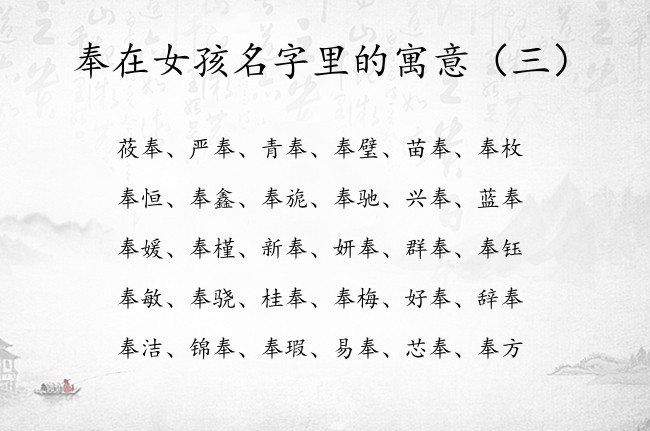 奉在女孩名字里的寓意（三）
莜奉、严奉、青奉、奉壁、苗奉、奉枚
奉恒、奉鑫、奉旎、奉驰、兴奉、蓝奉
奉媛、奉槿、新奉、妍奉、群奉、奉钰
奉敏、奉骁、桂奉、奉梅、好奉、辞奉
奉洁、锦奉、奉瑕、易奉、芯奉、奉方